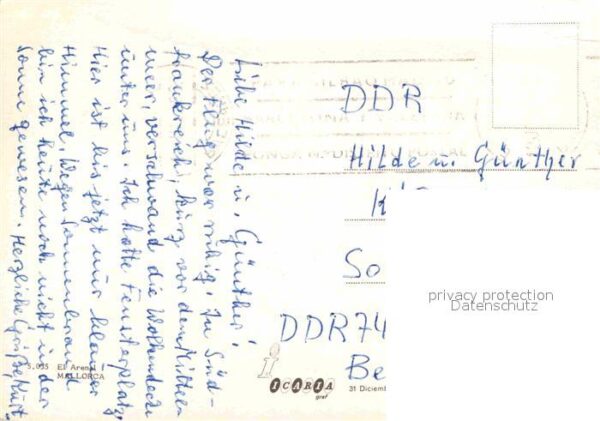 Liebe Hilde u. Günther!
Der Flug war ruhig. In Süd-
frankreich, kurz vor dem Mittel-
meer, verschwand die Wolkendecke
unter uns. Ich hatte Fensterplatz.
Hier ist bis jetzt nur klarer
Himmel. Wegen Sonnenbrand
bin ich heute noch nicht in der
Sonne gewesen. Herzliche Grüße Kurt
5.035 El Arenal
MALLORCA
DDR
Hilde u. Günther
K
So
DDR 74
Be
privacy protection
Datenschutz
ICARIA
graf
31 Diciem